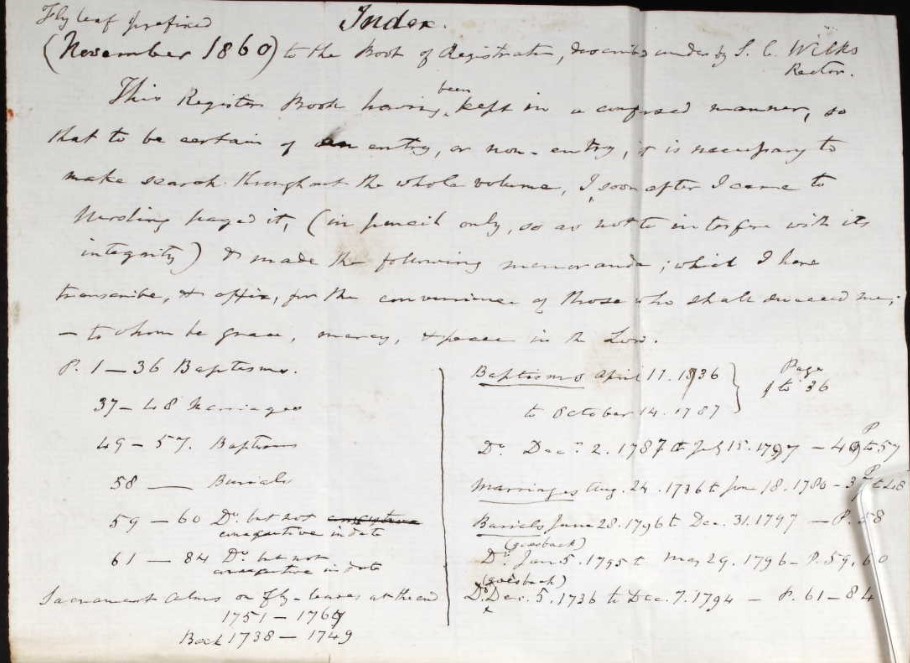 Fly leaf prefixed
Index.
(November 1860) to the Book of Registration, described under by S. C. Wilks
Rector.
This Register Book having been kept in a confused manner, so
that to be certain of an entry, or non-entry, it is necessary to
make search throughout the whole volume, I soon after I came to
Nursling paged it, (in pencil only, so as not to interfere with its
integrity) & made the following memoranda; which I here
transcribe, & affix, for the convenience of those who shall succeed me;
— to whom be grace, mercy, & peace in the Lord.
P. 1 — 36 Baptisms.
37 — 48 Marriages
49 — 57. Baptisms
58 — Burials
59 — 60 Do. but not consecutive
consecutive in date
61 — 84 Do. but not
consecutive in date
Sacrament Alms on fly-leaves at the end
1751 — 1769
Back 1738 — 1749
Baptisms April 17. 1736
to October 14. 1787 } Page
1 to 36
Do. Decr. 2. 1787 to July 15. 1797 — 49 to 57
Marriages Aug. 24. 1736 to June 18. 1780 - 37 to 48
Burials June 28. 1796 to Dec. 31. 1797 — P. 58
(goes back)
Do. Jan 5. 1795 to May 29. 1796 - P. 59. 60
(goes back)
Do. Dec. 5. 1736 to Dec. 7. 1794 — P. 61 - 84